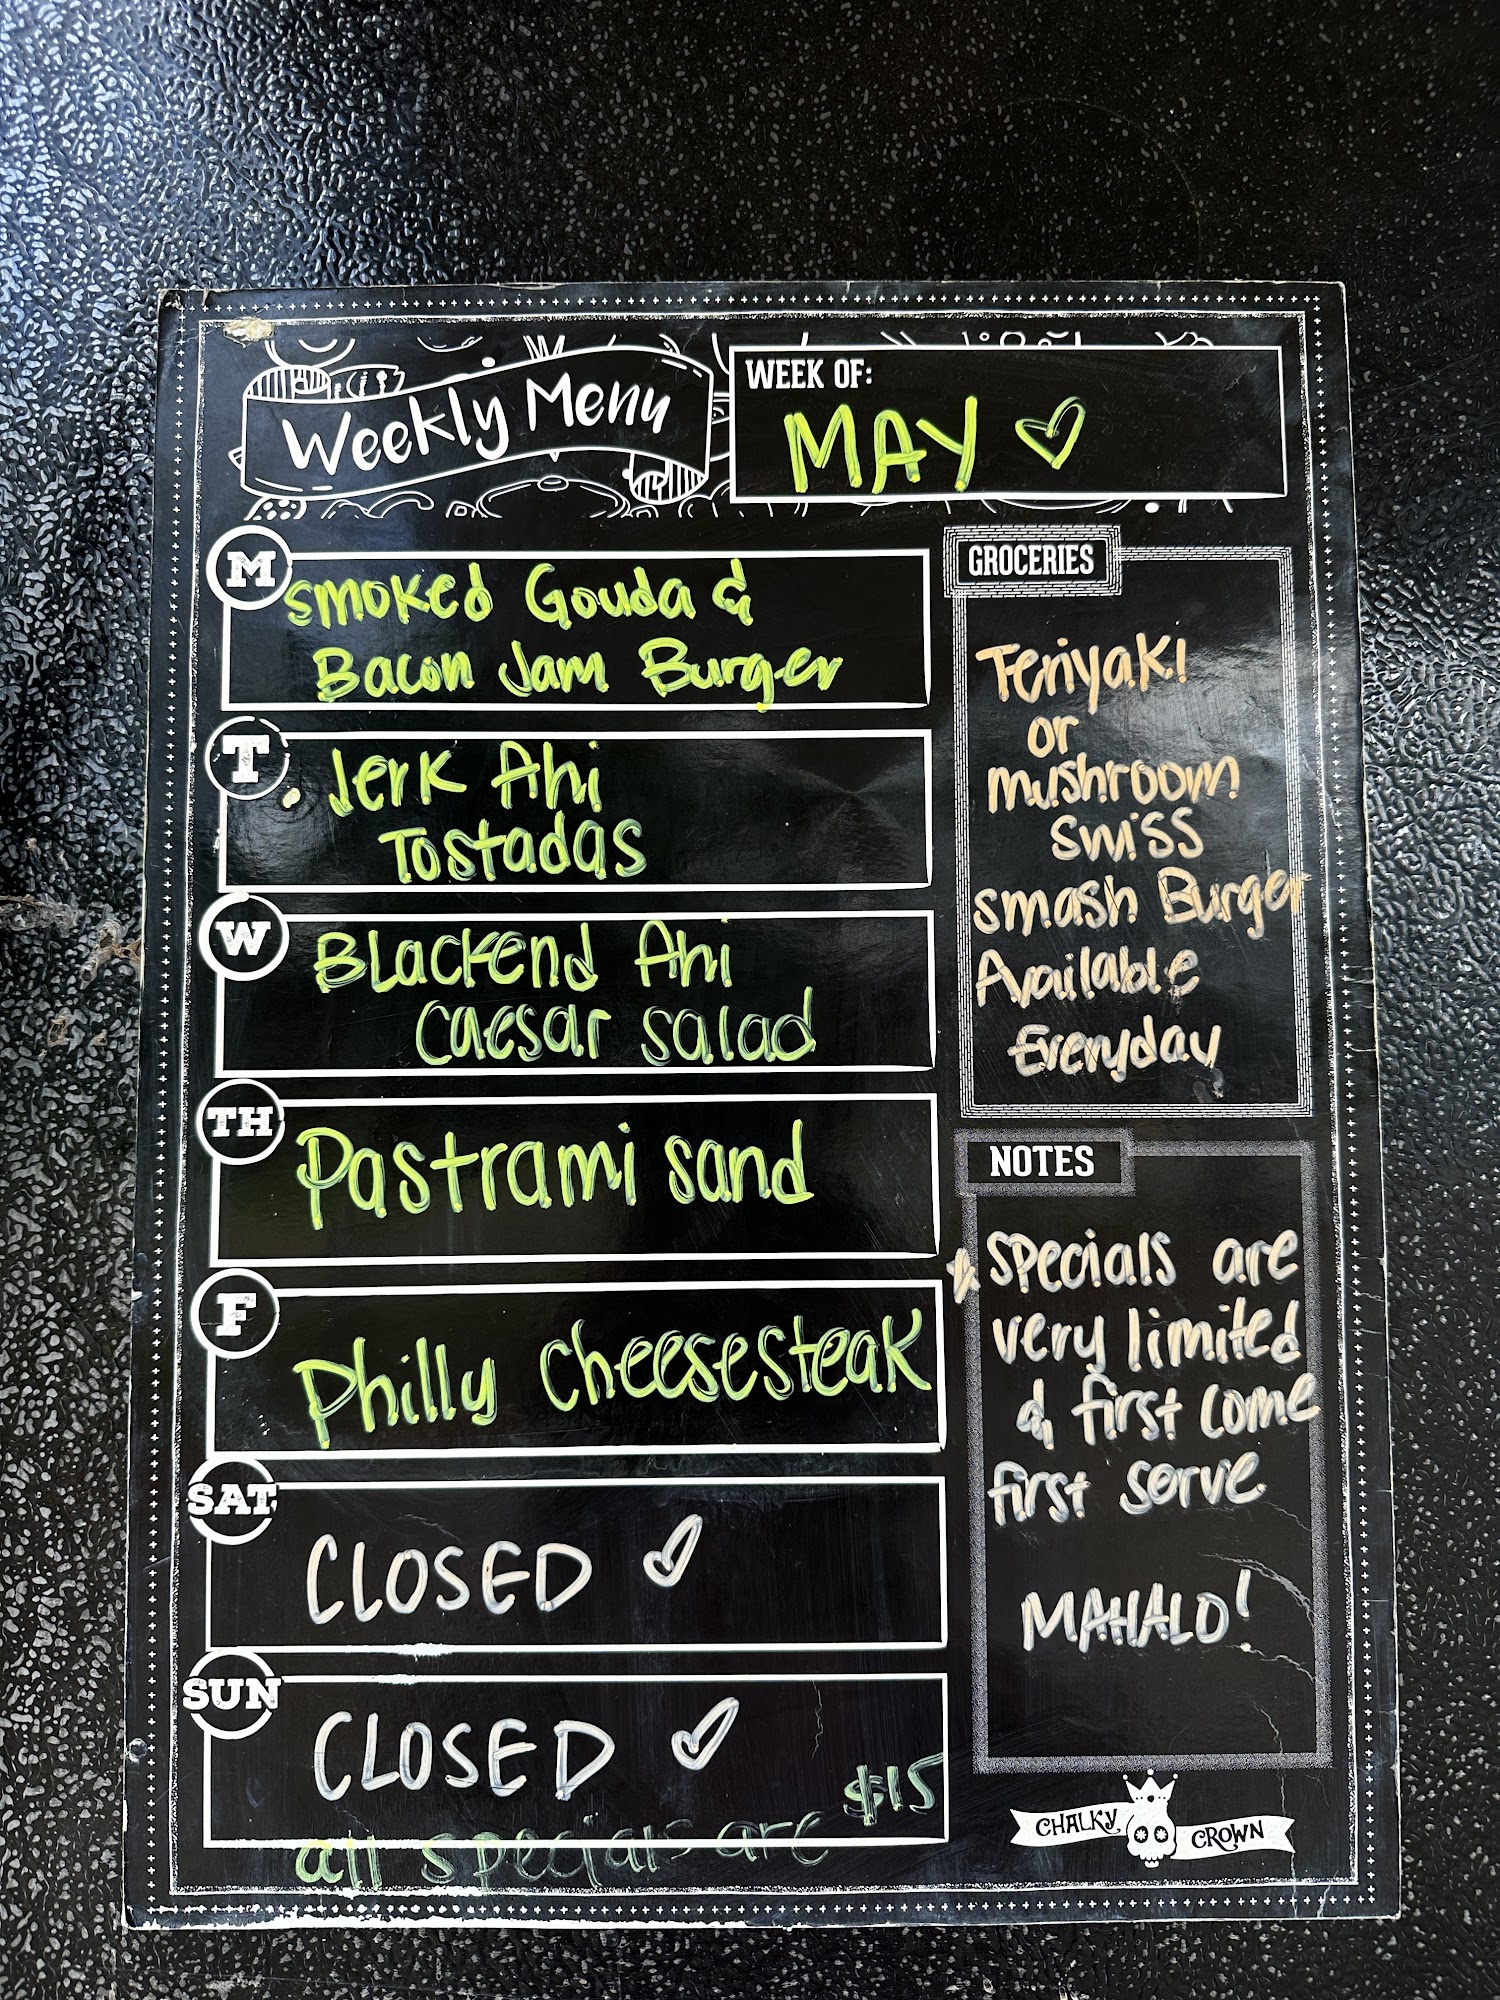 Weekly Menu
WEEK OF:
MAY
M
Smoked Gouda &
Bacon Jam Burger
T
Jerk Ahi
Tostadas
W
Blackend Ahi
Caesar salad
TH
Pastrami sand
F
Philly Cheesesteak
SAT
CLOSED
SUN
CLOSED
all specials are $15
GROCERIES
Teriyaki
or
mushroom
Swiss
smash Burger
Available
Everyday
NOTES
* Specials are
very limited
& first come
first serve
MAHALO!
CHALKY CROWN